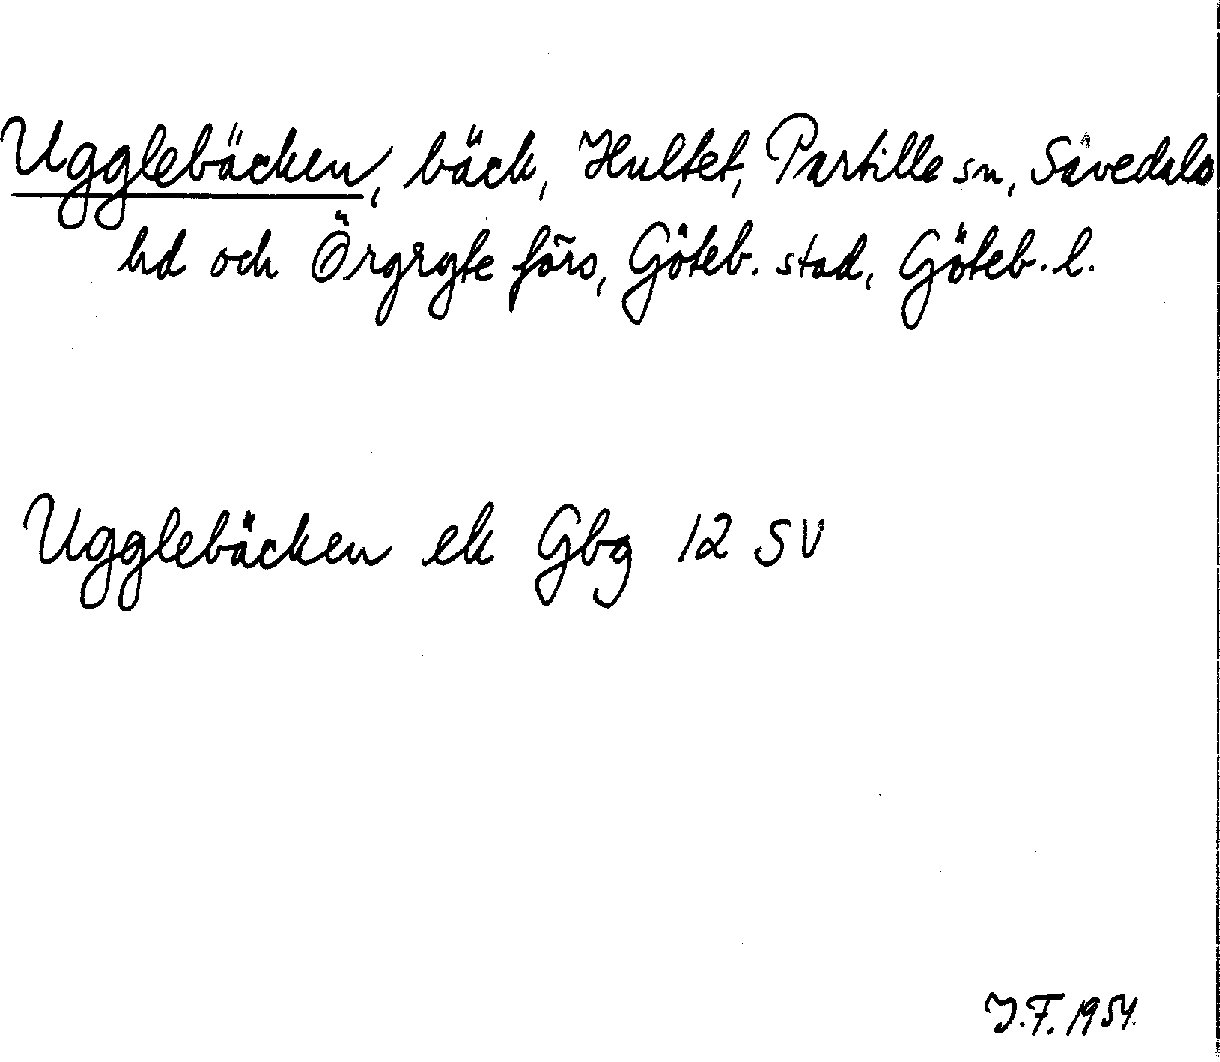 Ugglebäcken, bäck, Hultet, Partille sn, Sävedals
hd och Örgryte förs, Göteb. stad, Göteb. l.
Ugglebäcken ek Gbg 12 SV
I.F. 1954.